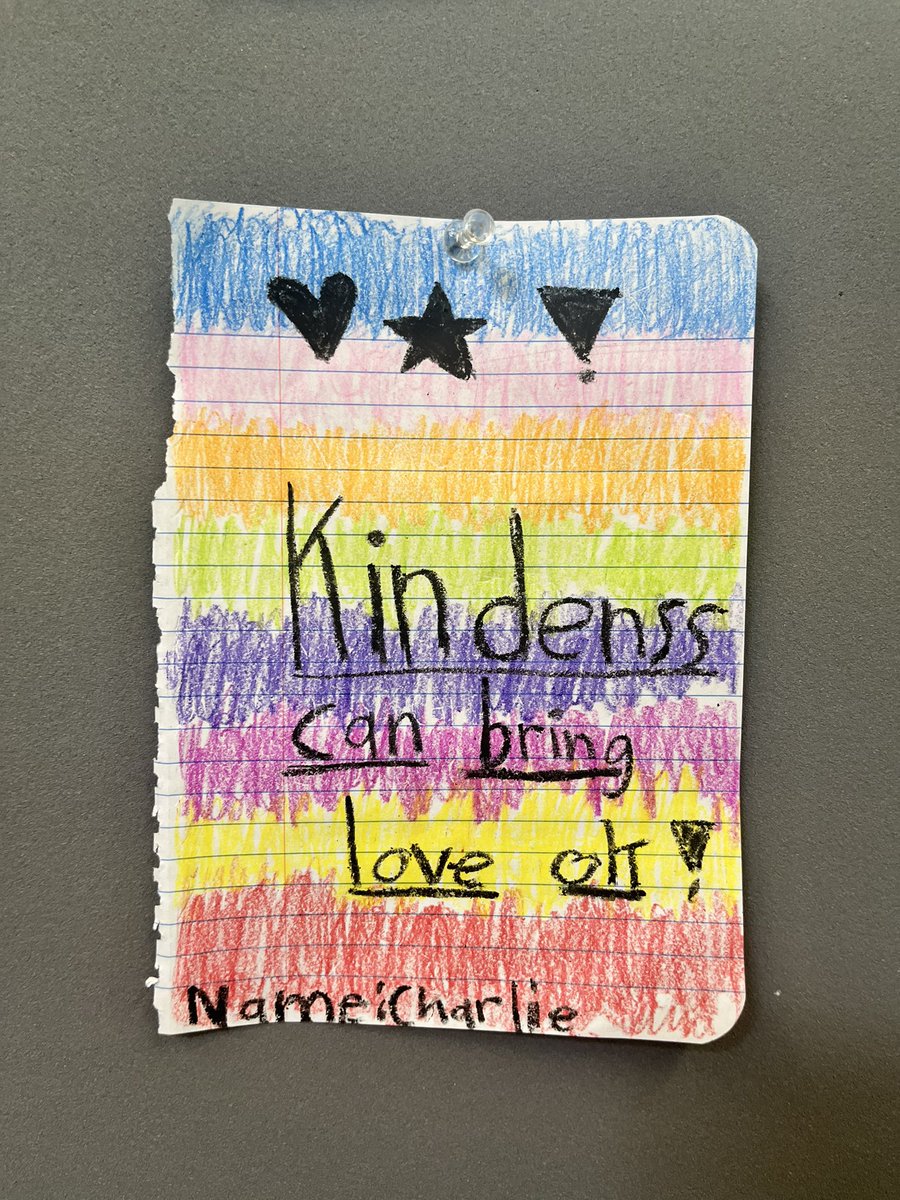 Kindenss
can bring
love ok!
Name:Charlie